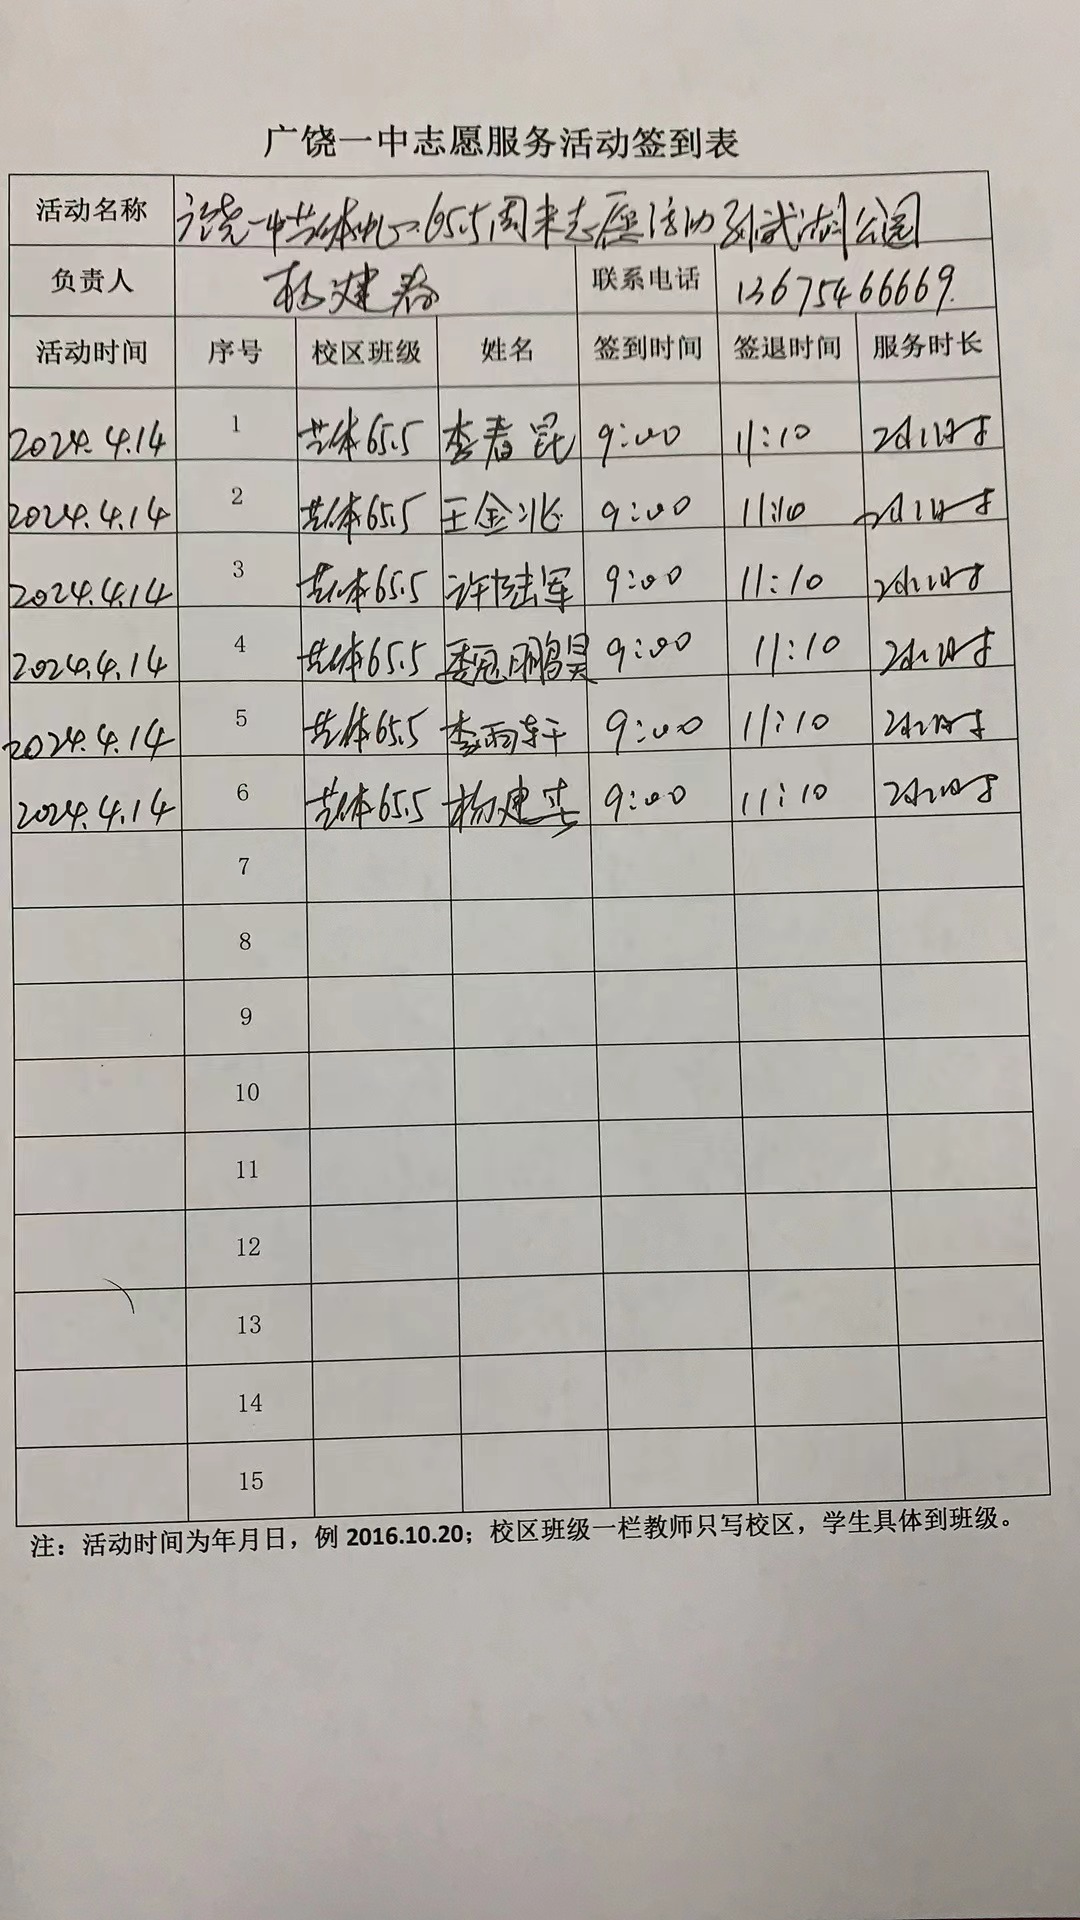 广饶一中志愿服务活动签到表
活动名称 广饶一中艺体中心65.5周末志愿活动孙武湖公园
负责人 杨建 联系电话 13675466669.
活动时间 序号 校区班级 姓名 签到时间 签退时间 服务时长
2024.4.14 1 艺体65.5 李春昆 9:00 11:10 2小时
2024.4.14 2 艺体65.5 王金兆 9:00 11:10 2小时
2024.4.14 3 艺体65.5 许陆军 9:00 11:10 2小时
2024.4.14 4 艺体65.5 鹏昊 9:00 11:10 2小时
2024.4.14 5 艺体65.5 李雨轩 9:00 11:10 2小时
2024.4.14 6 艺体65.5 杨建 9:00 11:10 2小时
7
8
9
10
11
12
13
14
15
注：活动时间为年月日，例 2016.10.20；校区班级一栏教师只写校区，学生具体到班级。